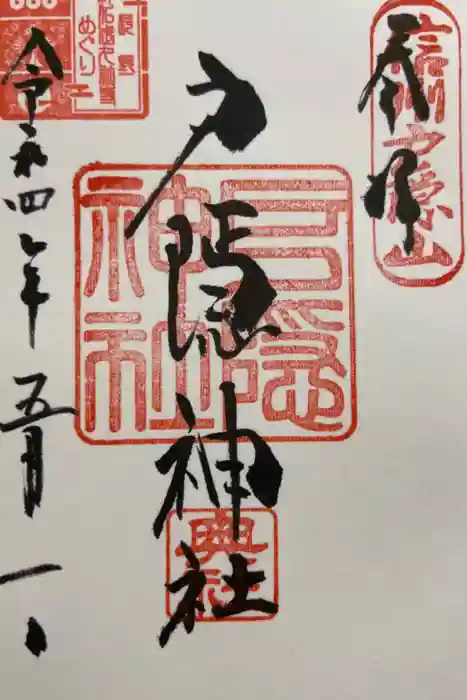 信州戸隠山
奉拝
戸隠神社
戸隠神社
奥社
めぐり
令和四年五月一日